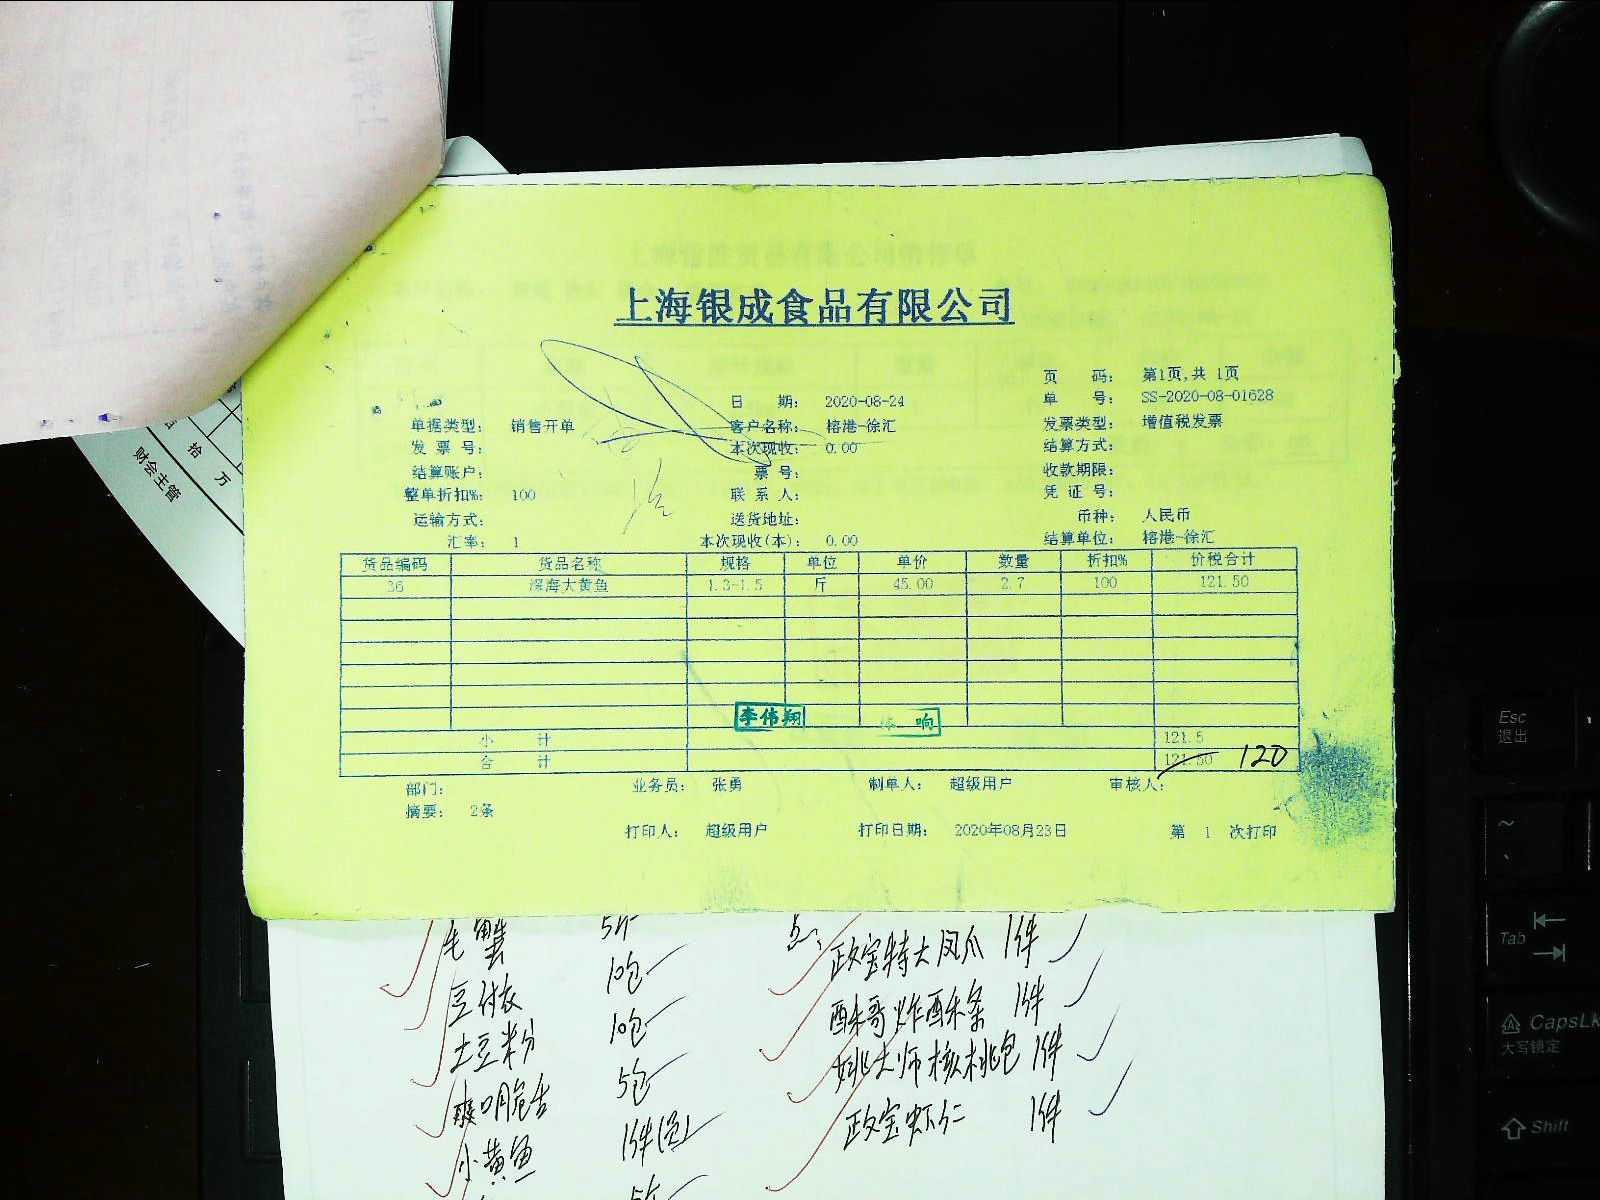 上海银成食品有限公司
页 码: 第1页,共 1页
日 期: 2020-08-24 单 号: SS-2020-08-01628
单据类型: 销售开单 客户名称: 榕港-徐汇 发票类型: 增值税发票
发 票 号: 本次现收: 0.00 结算方式:
结算账户: 票 号: 收款期限:
整单折扣%: 100 联 系 人: 凭 证 号:
运输方式: 送货地址: 币种: 人民币
汇率: 1 本次现收(本): 0.00 结算单位: 榕港-徐汇
货品编码 货品名称 规格 单位 单价 数量 折扣% 价税合计
36 深海大黄鱼 1.3-1.5 斤 45.00 2.7 100 121.50
李伟翔 响
小 计 121.5
合 计 121.50 120
部门: 业务员: 张勇 制单人: 超级用户 审核人:
摘要: 2条
打印人: 超级用户 打印日期: 2020年08月23日 第 1 次打印
拾 万
财会主管
毛蟹 5斤 政宝特大凤爪 1件
豆付衣 10包 酥哥炸酥条 1件
土豆粉 10包 姚大师核桃包 1件
5包 政宝虾仁 1件
小黄鱼 1件
Esc
退出
Tab
CapsLk
大写锁定
Shift